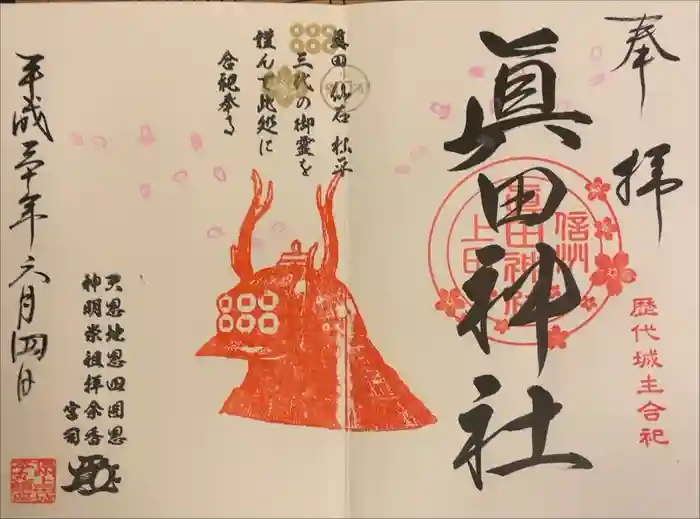 奉拝
歴代城主合祀
眞田神社
信州
上田
眞田神社
眞田 仙石 松平
三代の御霊を
謹んで此処に
合祀奉る
天恩地恩四囲恩
神明崇祖拝余香
宮司
平成三十年六月四日